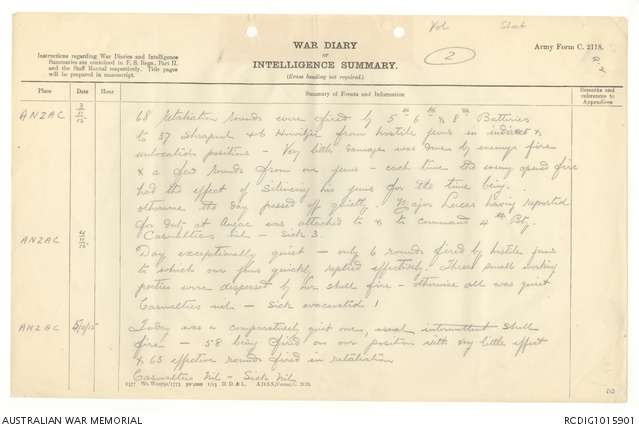 Army Form C. 2118.
WAR DIARY
or
INTELLIGENCE SUMMARY.
(Erase heading not required).
2
Instructions regarding War Diaries and Intelligence
Summaries are contained in F. S. Regs., Part II.
and the Staff Manual respectively. Title pages
will be prepared in manuscript.
Place
Date
Hour
Summary of Events and Information
Remarks and
references to
Appendices
ANZAC
68 retaliation rounds were fired by 5th 6th & 8th Batteries
to 37 Shrapnel & 6 Howitzer from hostile guns in indirect &
unlocation positions - Very little damage was done by enemys fire
& a few rounds from our guns - each time the enemy opend fire
had the effect of Silencing his guns for the time being.
otherwise the day passed off quietly. Major Lucas having reported
for duty at Anzac was attached to & to command 4th Bty.
Casualties nil - Sick 3.
ANZAC
Day exceptionally quiet - only 6 rounds fired by hostile guns
to which our guns quickly replied effectively. Three small working
parties were dispersed by our shell fire - otherwise all was quiet
Casualties nil - Sick evacuated 1
ANZAC
Today was a comparatively quiet one, usual intermittent Shell
fire - 58 being fired on our position with very little effect
& 65 effective rounds fired in retaliation
Casualties Nil - Sick Nil
AUSTRALIAN WAR MEMORIAL
RCDIG1015901